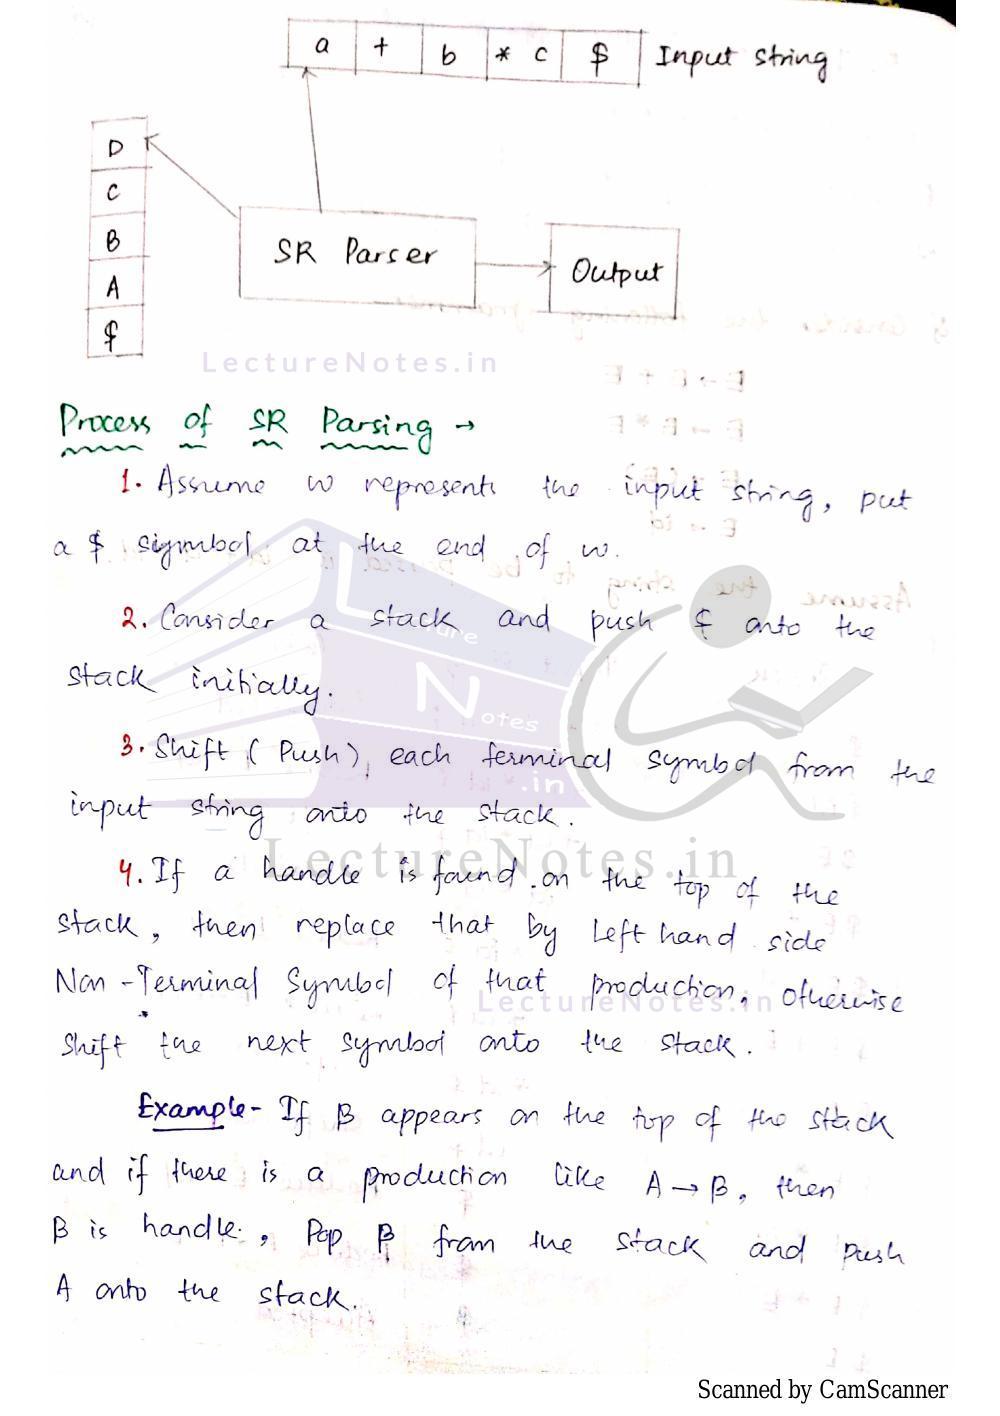 a + b * c $ Input string
D
C
B
A
$
SR Parser
Output
LectureNotes.in
Process of SR Parsing →
1. Assume w represents the input string, put
a $ sigmbol at the end of w.
2. Consider a stack and push $ onto the
stack initially.
3. Shift ( Push ), each terminal symbol from the
input string onto the stack.
LectureNotes.in
4. If a handle is found on the top of the
stack, then replace that by left hand side
Non-Terminal Symbol of that production, otherwise
LectureNotes.in
shift the next symbol onto the stack.
Example- If β appears on the top of the stack
and if there is a production like A → β, then
β is handle, Pop β from the stack and push
A onto the stack.
Scanned by CamScanner